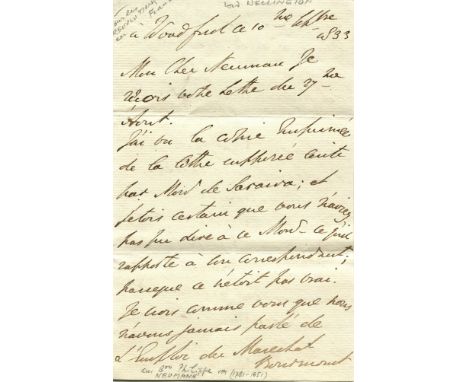 WELLINGTON
à Woodford ce 10 me 7bre
1833
Mon Cher Neuman Je
reçois votre lettre du 27 me
Août.
J'ai vu la copie Imprimée
de la lettre supposée écrite
par Monr de Saraiva; et
j'etois certain que vous n'aviez
pas pu dire à ce Monr ce qu'il
rapporte à son correspondant;
parceque ce n'etoit pas vrai.
Je crois comme vous que nous
n'avons jamais parlé de
L'Emploi du Marechal
Bourmont
NEUMANN